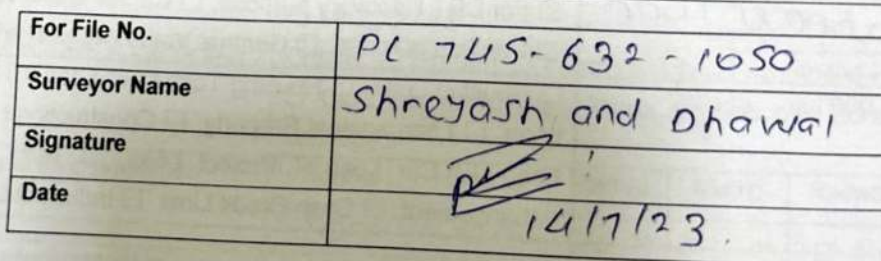 For File No. PL 745-632-1050
Surveyor Name Shreyash and Dhawal
Signature
Date 14/7/23.